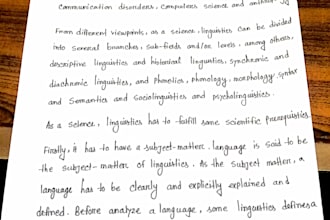 communication disorders, computers science and
From different viewpoints, as a science, linguistics can be divided
into several branches, sub-fields and/or levels, among others,
descriptive linguistics and historical linguistics, synchronic and
diachronic linguistics, and phonetics, phonology, morphology, syntax
and semantics and sociolinguistics and psycholinguistics.
As a science, linguistics has to fulfill some scientific prerequisites.
Firstly, it has to have a subject-matter. Language is said to be
the subject-matter of linguistics. As the subject matter, a
language has to be clearly and explicitly explained and
defined. Before analyze a language, some linguistics defines a